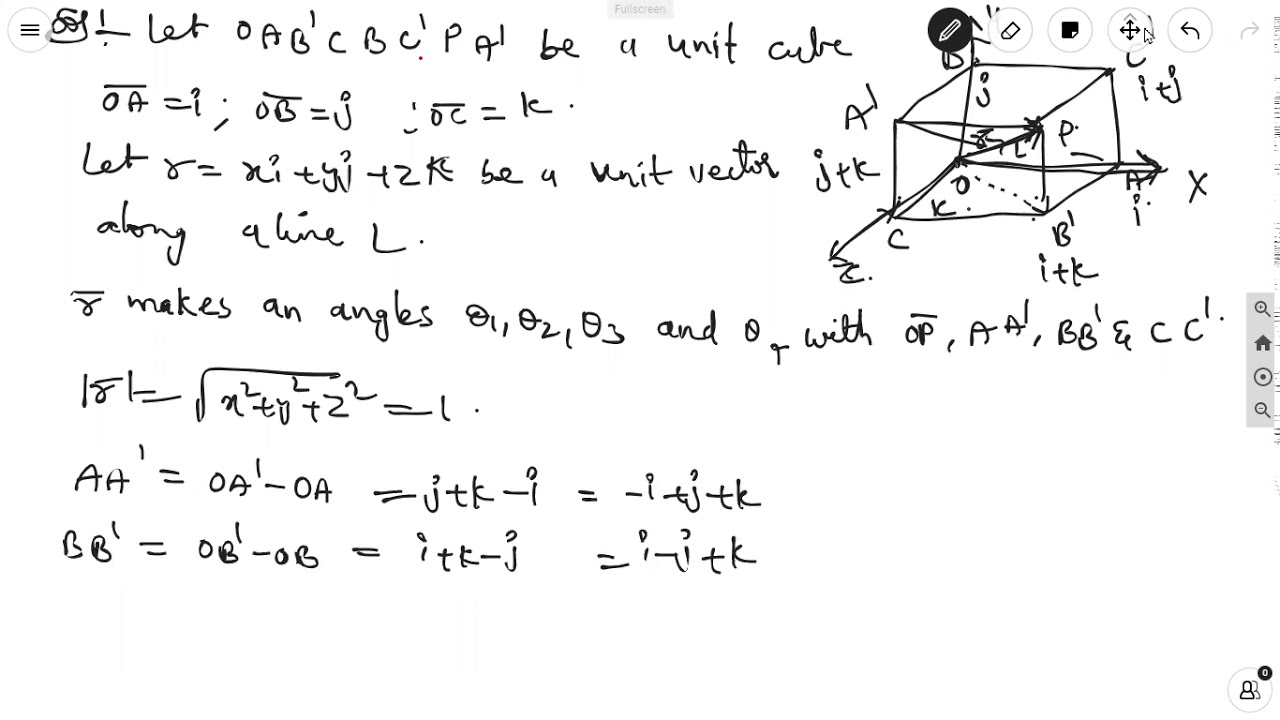 Fullscreen
Sol:- Let OAB'CBC'PA' be a unit cube
OA = i ; OB = j ; OC = k .
Let r = xi + yj + zk be a unit vector
along a line L .
r makes an angles θ1, θ2, θ3 and θ4 with OP, AA', BB' & CC' .
|r| = √x²+y²+z² = 1 .
AA' = OA' - OA = j+k-i = -i+j+k
BB' = OB' - OB = i+k-j = i-j+k
B
j
C'
i+j
A'
j+k
r
L
P.
O
A
i
X
k
C
B'
i+k
Z.
0